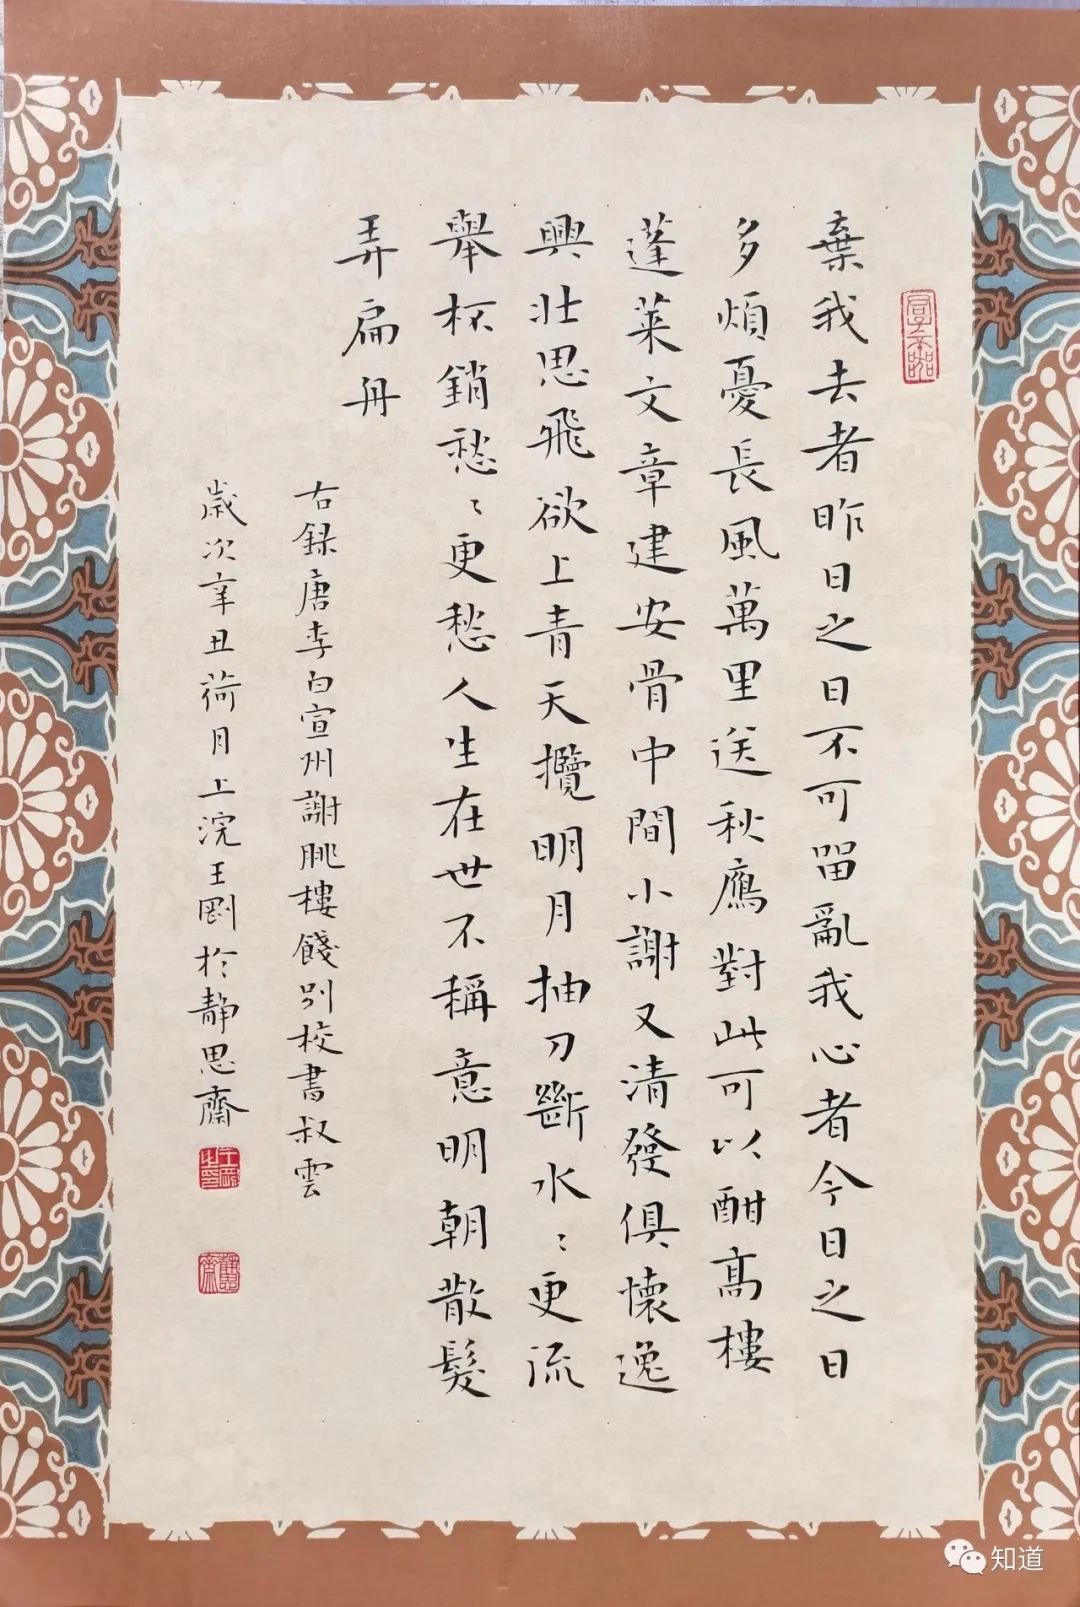 棄我去者昨日之日不可留亂我心者今日之日
多煩憂長風萬里送秋鴈對此可以酣高樓
蓬萊文章建安骨中間小謝又清發俱懷逸
興壯思飛欲上青天攬明月抽刀斷水〻更流
舉杯銷愁〻更愁人生在世不稱意明朝散髮
弄扁舟
右録唐李白宣州謝朓樓餞別校書叔雲
歲次辛丑荷月上浣王剛於靜思齋
知道